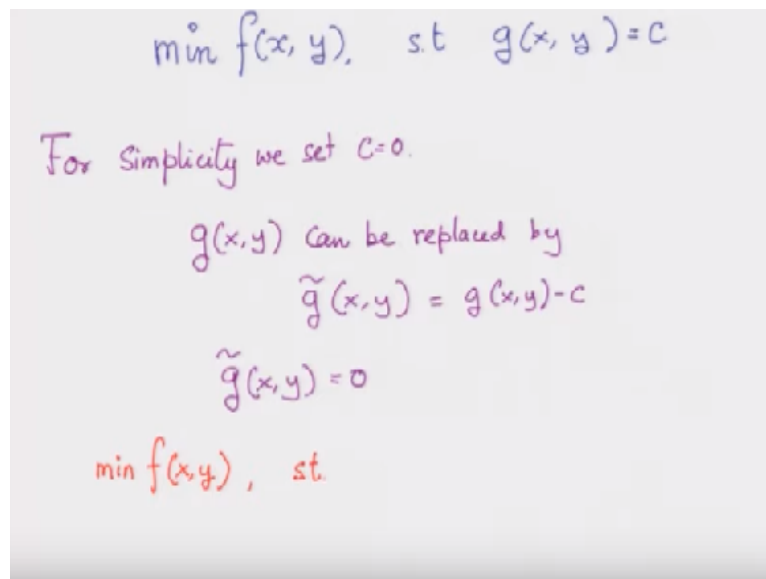 min f(x, y). s.t g(x, y) = C
For Simplicity we set C=0.
g(x,y) can be replaced by
g̃(x,y) = g(x,y)-C
g̃(x,y) = 0
min f(x,y), st.